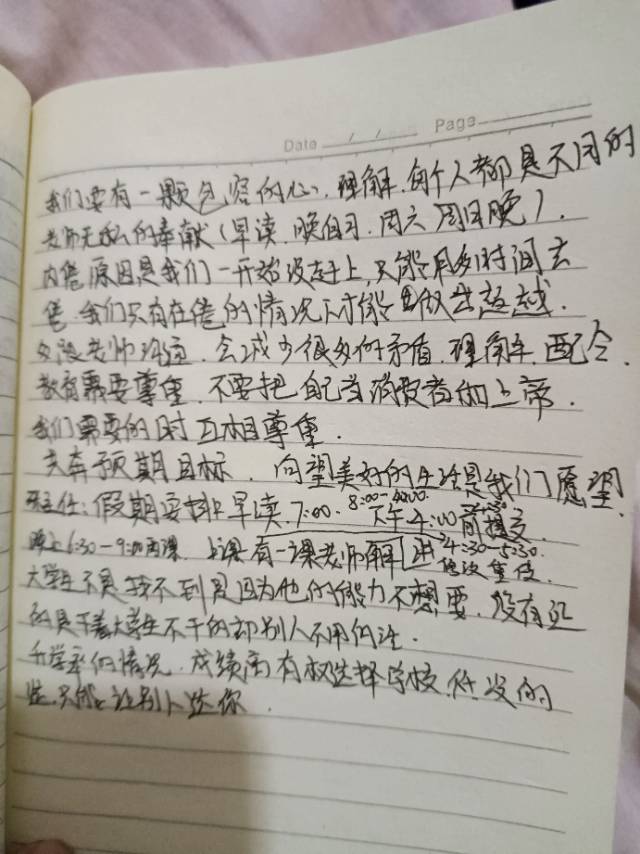 Date / / Page
我们要有一颗包容的心、理解.每个人都是不同的
老师无私的奉献(早读.晚自习.周六周日晚).
内卷原因是我们一开始没赶上,只能用多时间去
卷.我们只有在卷的情况下才能做出超越.
多跟老师沟通.会减少很多的矛盾.理解.配合.
教育需要尊重.不要把自己当消费者的上帝.
我们需要的时互相尊重.
去奔预期目标.向望美好的生活是我们愿望.
班主任:假期安排早读.7:00. 8:00-
下午4:00前提交.
晚上6:30-9:00两课.上课有一课老师解 4:30-5:30.
大学生不是找不到是因为他的能力不想要.没有
的是干着大学生不干的却别人不用的活.
升学率的情况.成绩高有权选择学校.低分的
只能让别人选你.